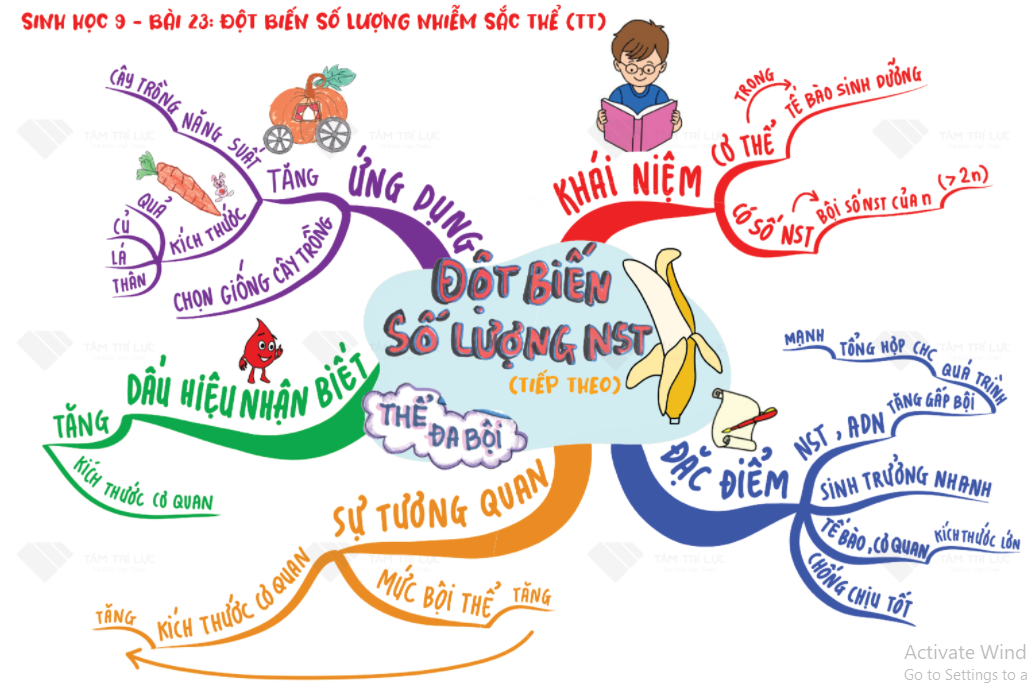 SINH HỌC 9 - BÀI 23: ĐỘT BIẾN SỐ LƯỢNG NHIỄM SẮC THỂ (TT)
ĐỘT BIẾN
SỐ LƯỢNG NST
(TIẾP THEO)
THỂ
ĐA BỘI
KHÁI NIỆM
CƠ THỂ
TRONG
TẾ BÀO SINH DƯỠNG
CÓ SỐ NST
BỘI SỐ NST CỦA n
(>2n)
ĐẶC ĐIỂM
NST, ADN
TĂNG GẤP BỘI
QUÁ TRÌNH
TỔNG HỢP CHC
MẠNH
SINH TRƯỞNG NHANH
TẾ BÀO, CƠ QUAN
KÍCH THƯỚC LỚN
CHỐNG CHỊU TỐT
SỰ TƯƠNG QUAN
MỨC BỘI THỂ
TĂNG
KÍCH THƯỚC CƠ QUAN
TĂNG
DẤU HIỆU NHẬN BIẾT
TĂNG
KÍCH THƯỚC CƠ QUAN
ỨNG DỤNG
TĂNG
NĂNG SUẤT
CÂY TRỒNG
KÍCH THƯỚC
QUẢ
CỦ
LÁ
THÂN
CHỌN GIỐNG CÂY TRỒNG
TÂM TRÍ LỰC
TÂM TRÍ LỰC
TÂM TRÍ LỰC
TÂM TRÍ LỰC
TÂM TRÍ LỰC
TÂM TRÍ LỰC
TÂM TRÍ LỰC
Activate Wind
Go to Settings to a